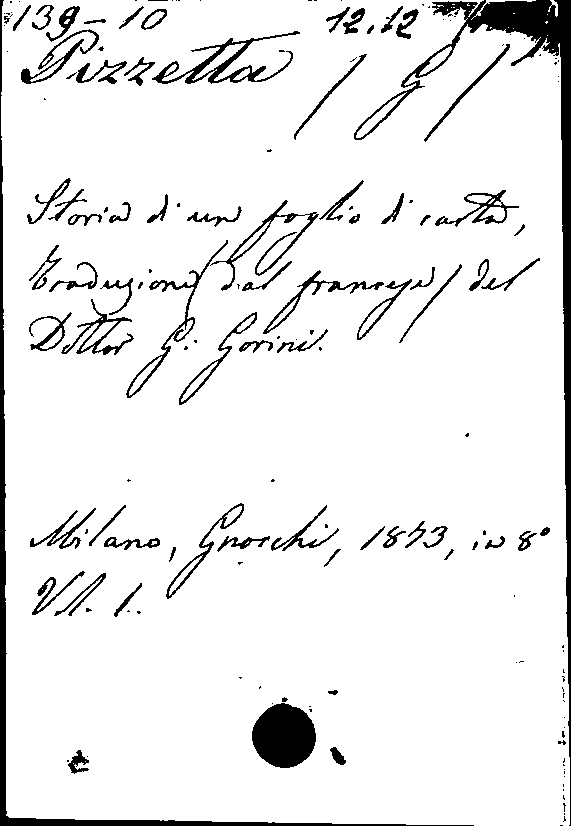 139-10 12.12
Pizzetta / G /
Storia di un foglio di carta,
traduzione (dal francese) del
Dottor G. Gorini.
Milano, Gnocchi, 1873, in 8°
Vol. 1.